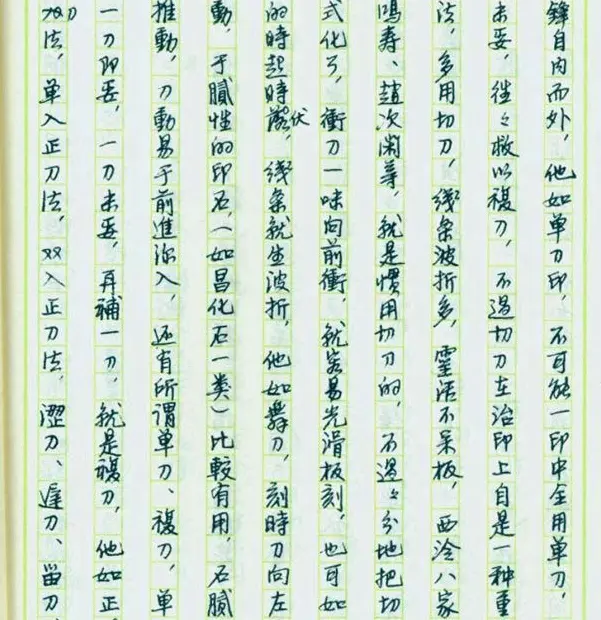 鋒自内而外，他如单刀印，不可能一印中全用单刀，
未妥，往々救以複刀，不過切刀在治印上自是一种重
法，多用切刀，綫条波折多，靈活不呆板，西泠八家
鳴寿、趙次閑等，就是慣用切刀的，不過々分地把切
式化了，衝刀一味向前衝，就容易光滑板刻，也可如
的時起時伏，綫条就生波折，他如舞刀，刻時刀向左
動，于膩性的印石，（如昌化石一类）比較有用，石膩
推動，刀動易于前進深入，还有所謂单刀、複刀，单
一刀即妥，一刀未妥，再補一刀，就是複刀，他如正
双刀法，单入正刀法，双入正刀法，澀刀、遲刀、留刀、